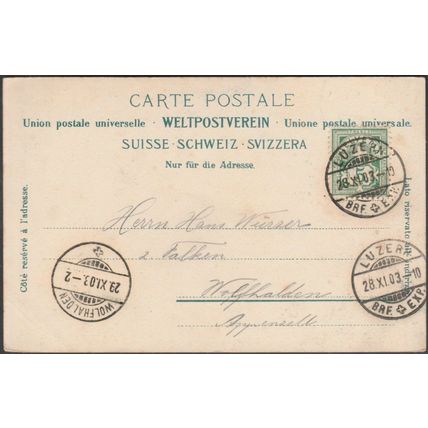 CARTE POSTALE
Union postale universelle · WELTPOSTVEREIN · Unione postale universale.
SUISSE · SCHWEIZ · SVIZZERA
Nur für die Adresse.
Côté resérvé à l'adresse.
Lato riservato
5
LUZERN
28.XI.03.-10
BRF. EXP.
Herrn Hans
z. Falken
Wolfhalden
Appenzell
WOLFHALDEN
29.XI.03.-2
LUZERN
28.XI.03.-10
BRF. EXP.